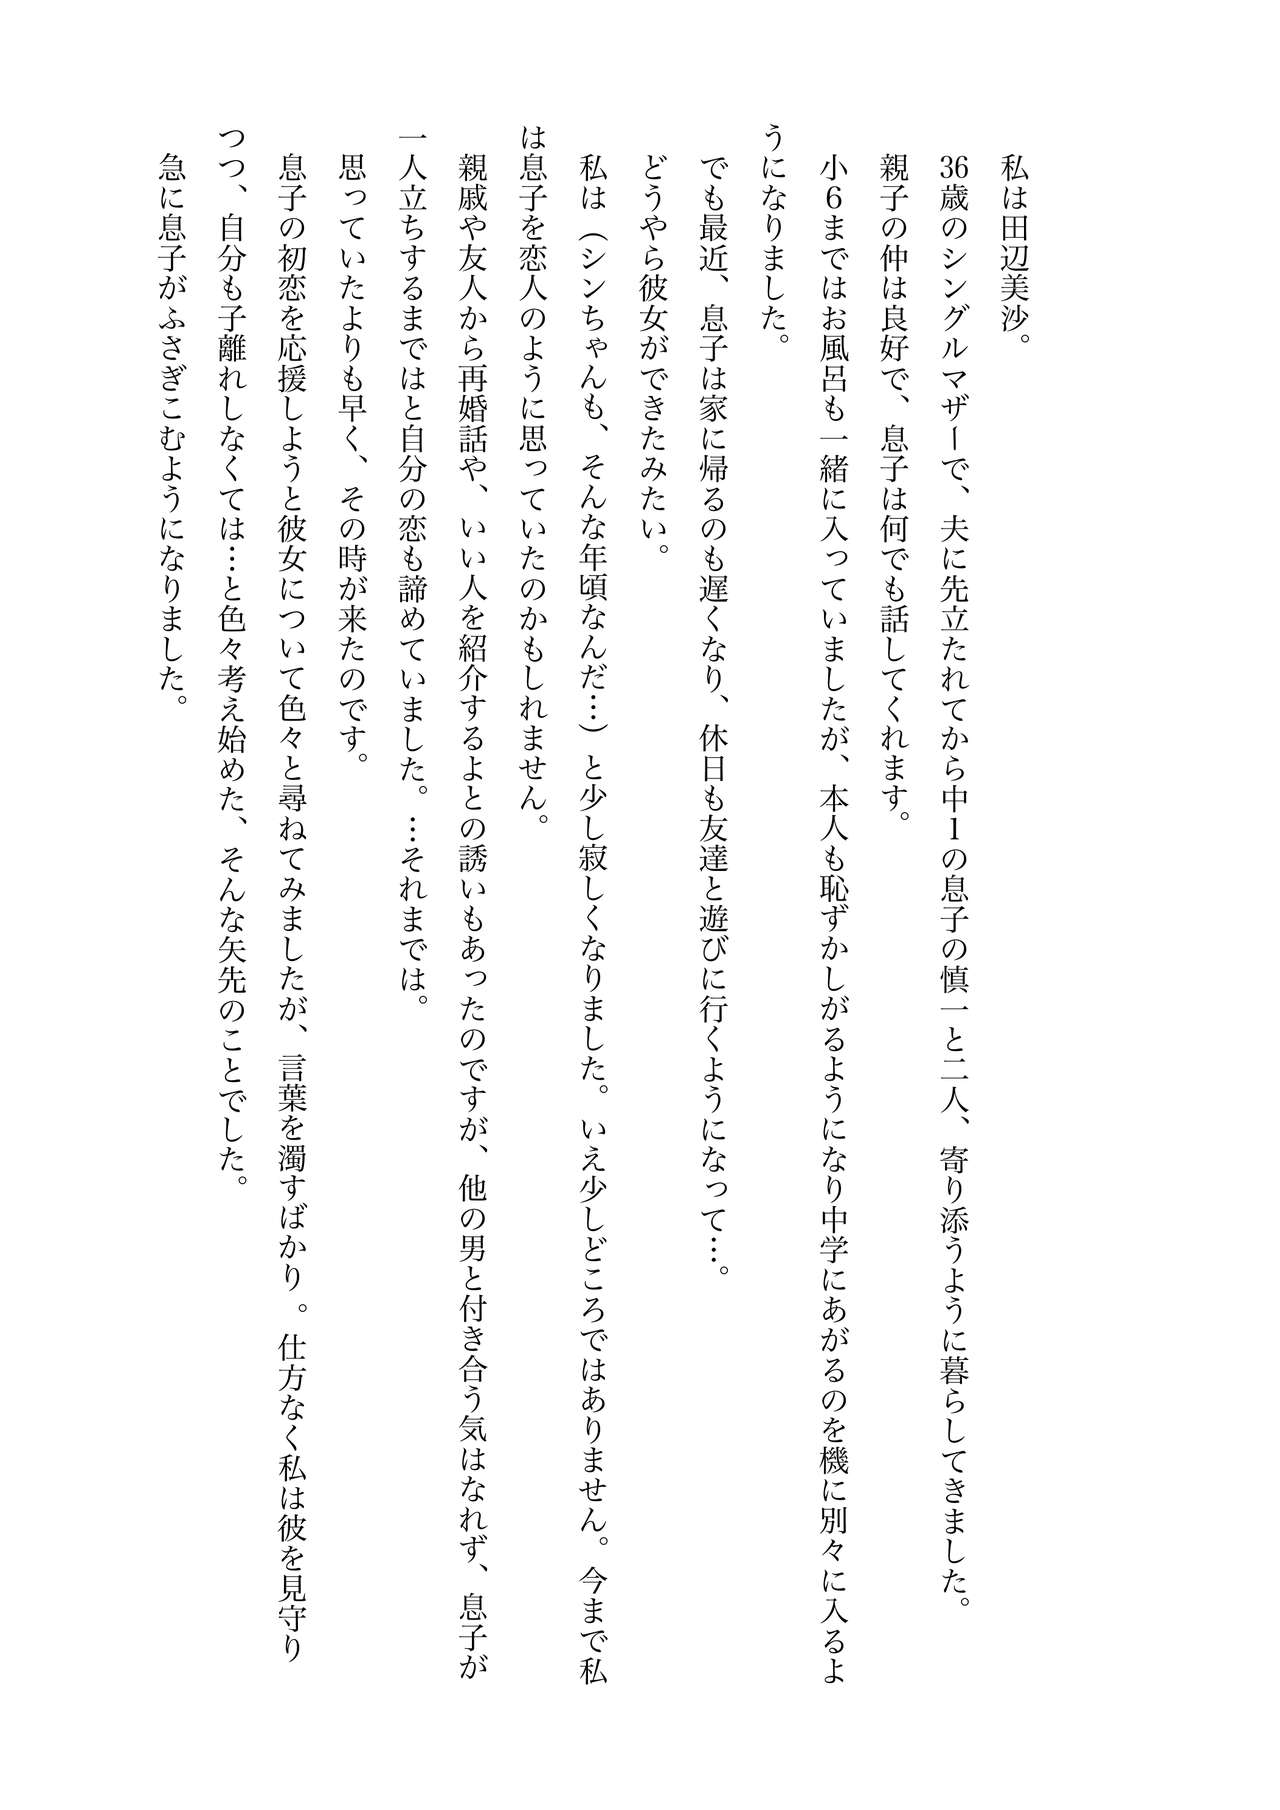 私は田辺美沙。
36歳のシングルマザーで、夫に先立たれてから中1の息子の慎一と二人、寄り添うように暮らしてきました。
親子の仲は良好で、息子は何でも話してくれます。
小6まではお風呂も一緒に入っていましたが、本人も恥ずかしがるようになり中学にあがるのを機に別々に入るよ
うになりました。
でも最近、息子は家に帰るのも遅くなり、休日も友達と遊びに行くようになって…。
どうやら彼女ができたみたい。
私は（シンちゃんも、そんな年頃なんだ…）と少し寂しくなりました。いえ少しどころではありません。今まで私
は息子を恋人のように思っていたのかもしれません。
親戚や友人から再婚話や、いい人を紹介するよとの誘いもあったのですが、他の男と付き合う気はなれず、息子が
一人立ちするまではと自分の恋も諦めていました。…それまでは。
思っていたよりも早く、その時が来たのです。
息子の初恋を応援しようと彼女について色々と尋ねてみましたが、言葉を濁すばかり。仕方なく私は彼を見守り
つつ、自分も子離れしなくては…と色々考え始めた、そんな矢先のことでした。
急に息子がふさぎこむようになりました。